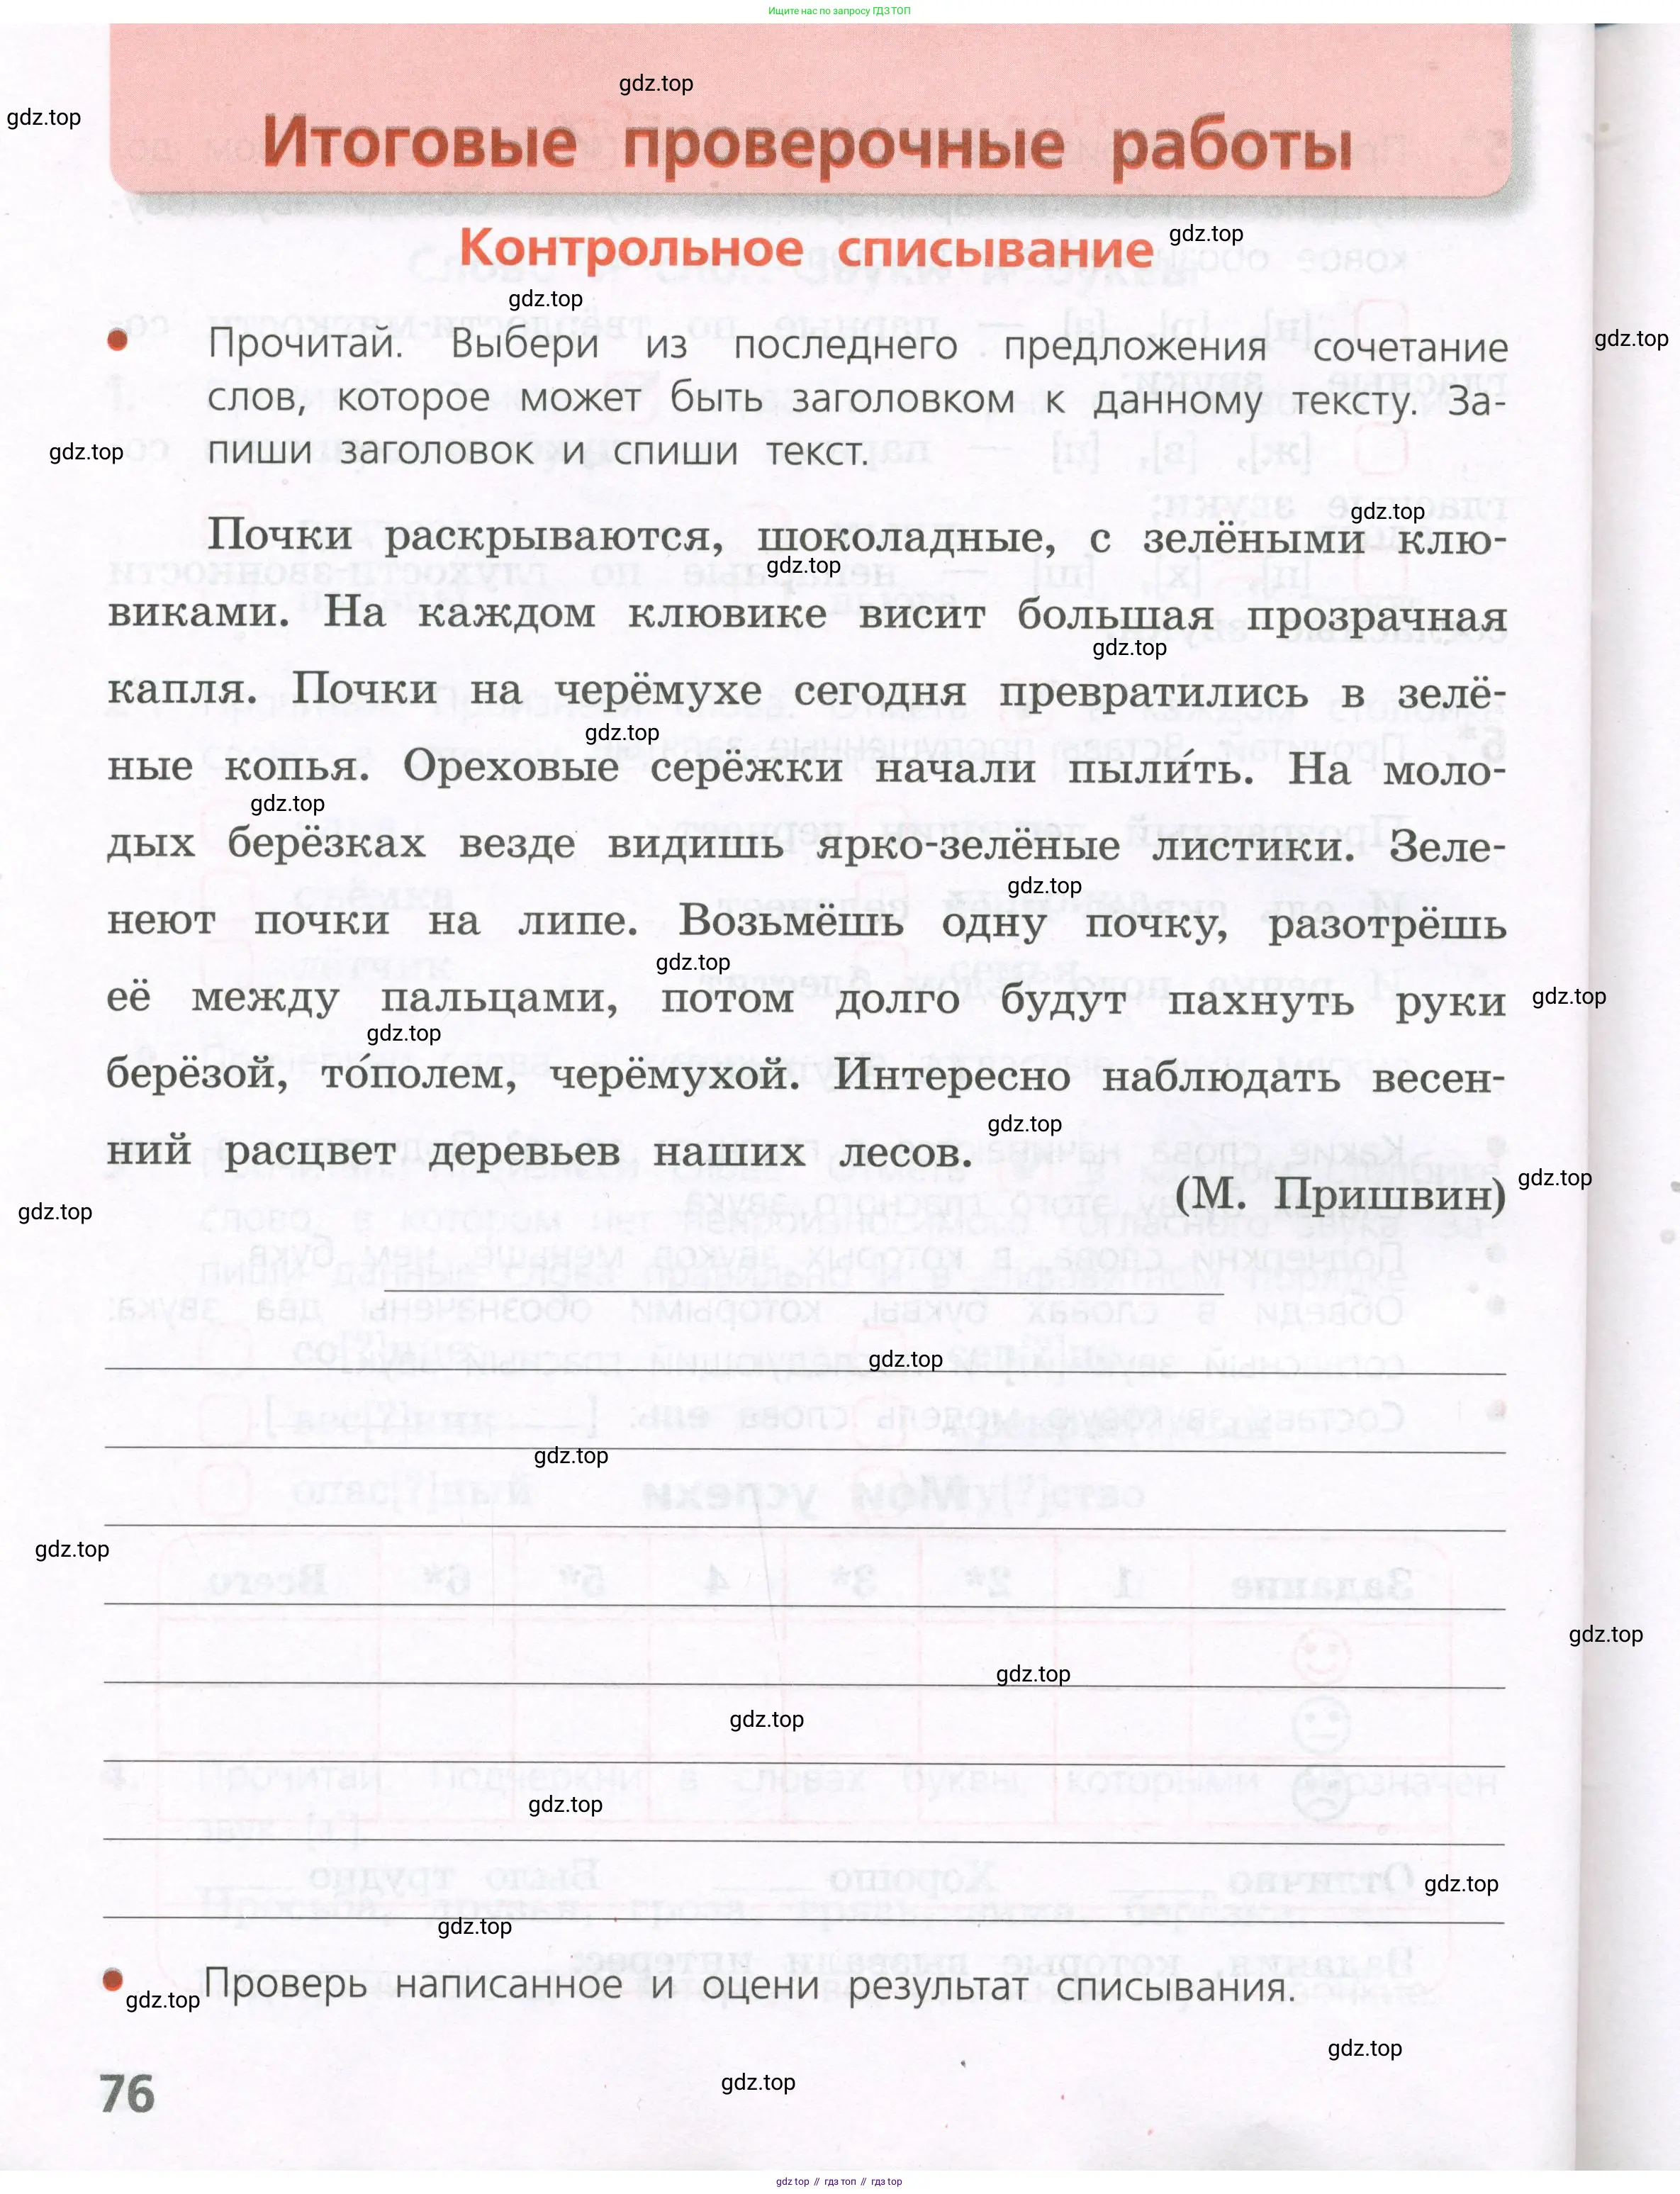 Ищите нас по запросу ГДЗ ТОП
gdz.top
gdz.top
Итоговые проверочные работы
Контрольное списывание
gdz.top
gdz.top
gdz.top
Прочитай. Выбери из последнего предложения сочетание
слов, которое может быть заголовком к данному тексту. За-
пиши заголовок и спиши текст.
gdz.top
gdz.top
Почки раскрываются, шоколадные, с зелёными клю-
gdz.top
виками. На каждом клювике висит большая прозрачная
gdz.top
капля. Почки на черёмухе сегодня превратились в зелё-
gdz.top
ные копья. Ореховые серёжки начали пыли́ть. На моло-
gdz.top
дых берёзках везде видишь ярко-зелёные листики. Зеле-
gdz.top
неют почки на липе. Возьмёшь одну почку, разотрёшь
gdz.top
её между пальцами, потом долго будут пахнуть руки
gdz.top
gdz.top
берёзой, то́полем, черёмухой. Интересно наблюдать весен-
gdz.top
ний расцвет деревьев наших лесов.
gdz.top
(М. Пришвин)
gdz.top
gdz.top
gdz.top
gdz.top
gdz.top
gdz.top
gdz.top
gdz.top
gdz.top
gdz.top
Проверь написанное и оцени результат списывания.
gdz.top
gdz.top
gdz.top
76
gdz.top // гдз топ // гдз top